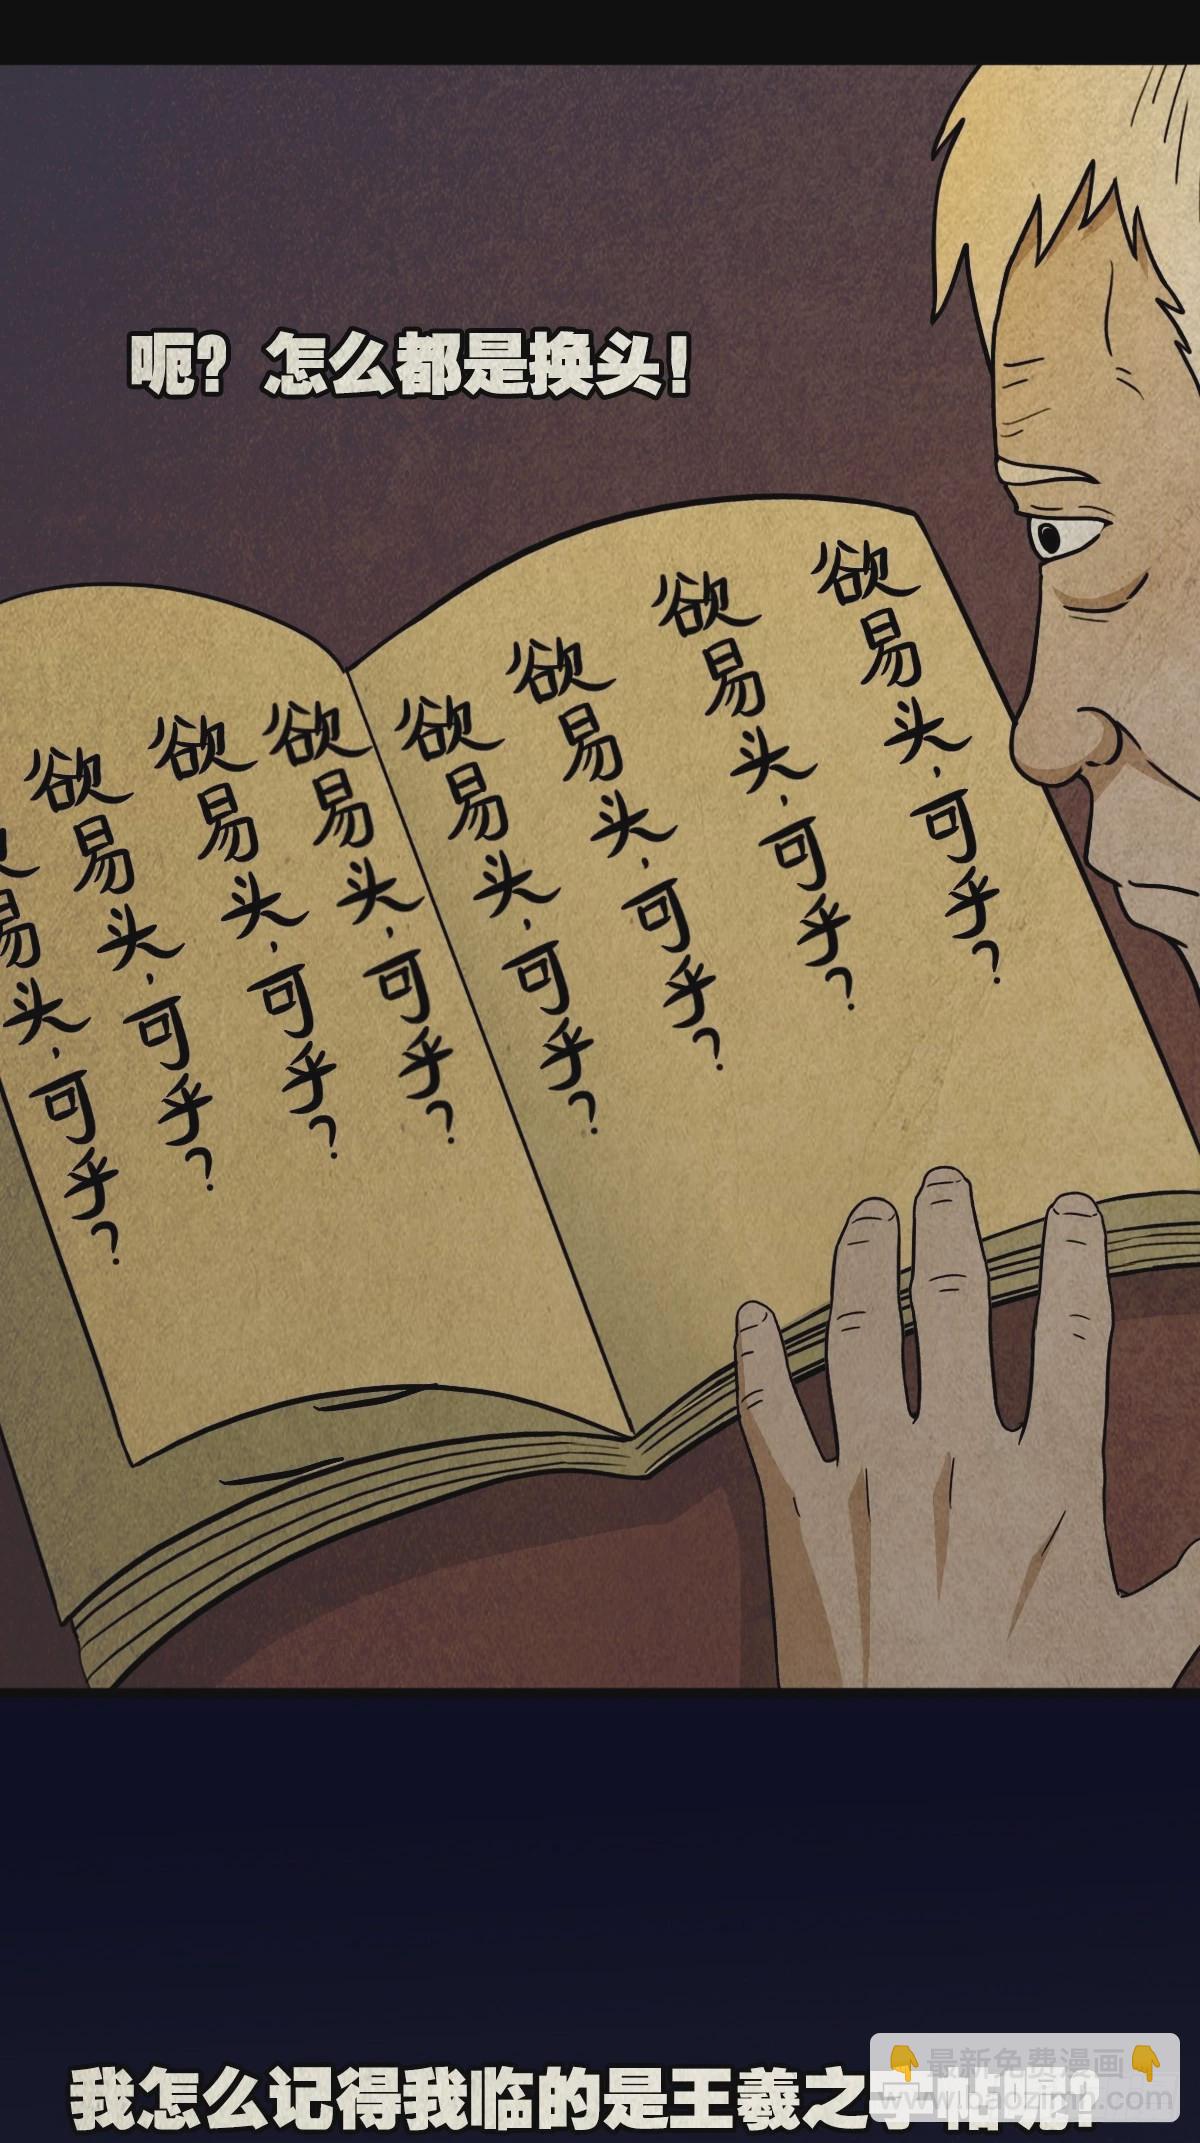 呃？怎么都是换头！
欲易头，可乎？
欲易头，可乎？
欲易头，可乎？
欲易头，可乎？
欲易头，可乎？
欲易头，可乎？
欲易头，可乎？
易头，可乎？
👇最新免费漫画👇
www.baozimh.com
我怎么记得我临的是王羲之字帖呢？